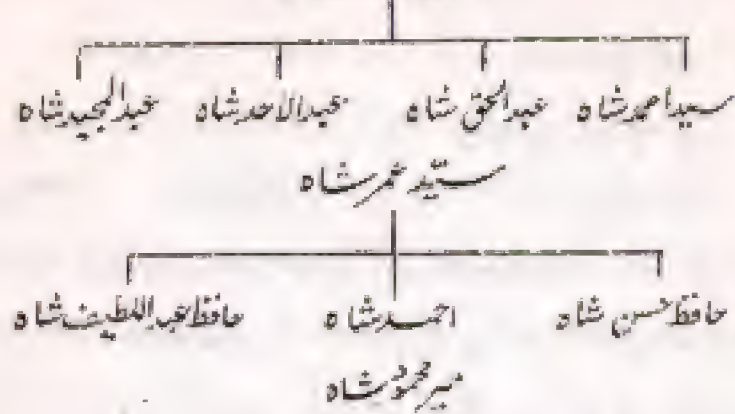 سید احمد شاہ عبدالحق شاہ عبدالاحد شاہ عبدالمجید شاہ
سیّد عمر شاہ
حافظ حسن شاہ احمد شاہ حافظ عبداللطیف شاہ
میر محمود شاہ